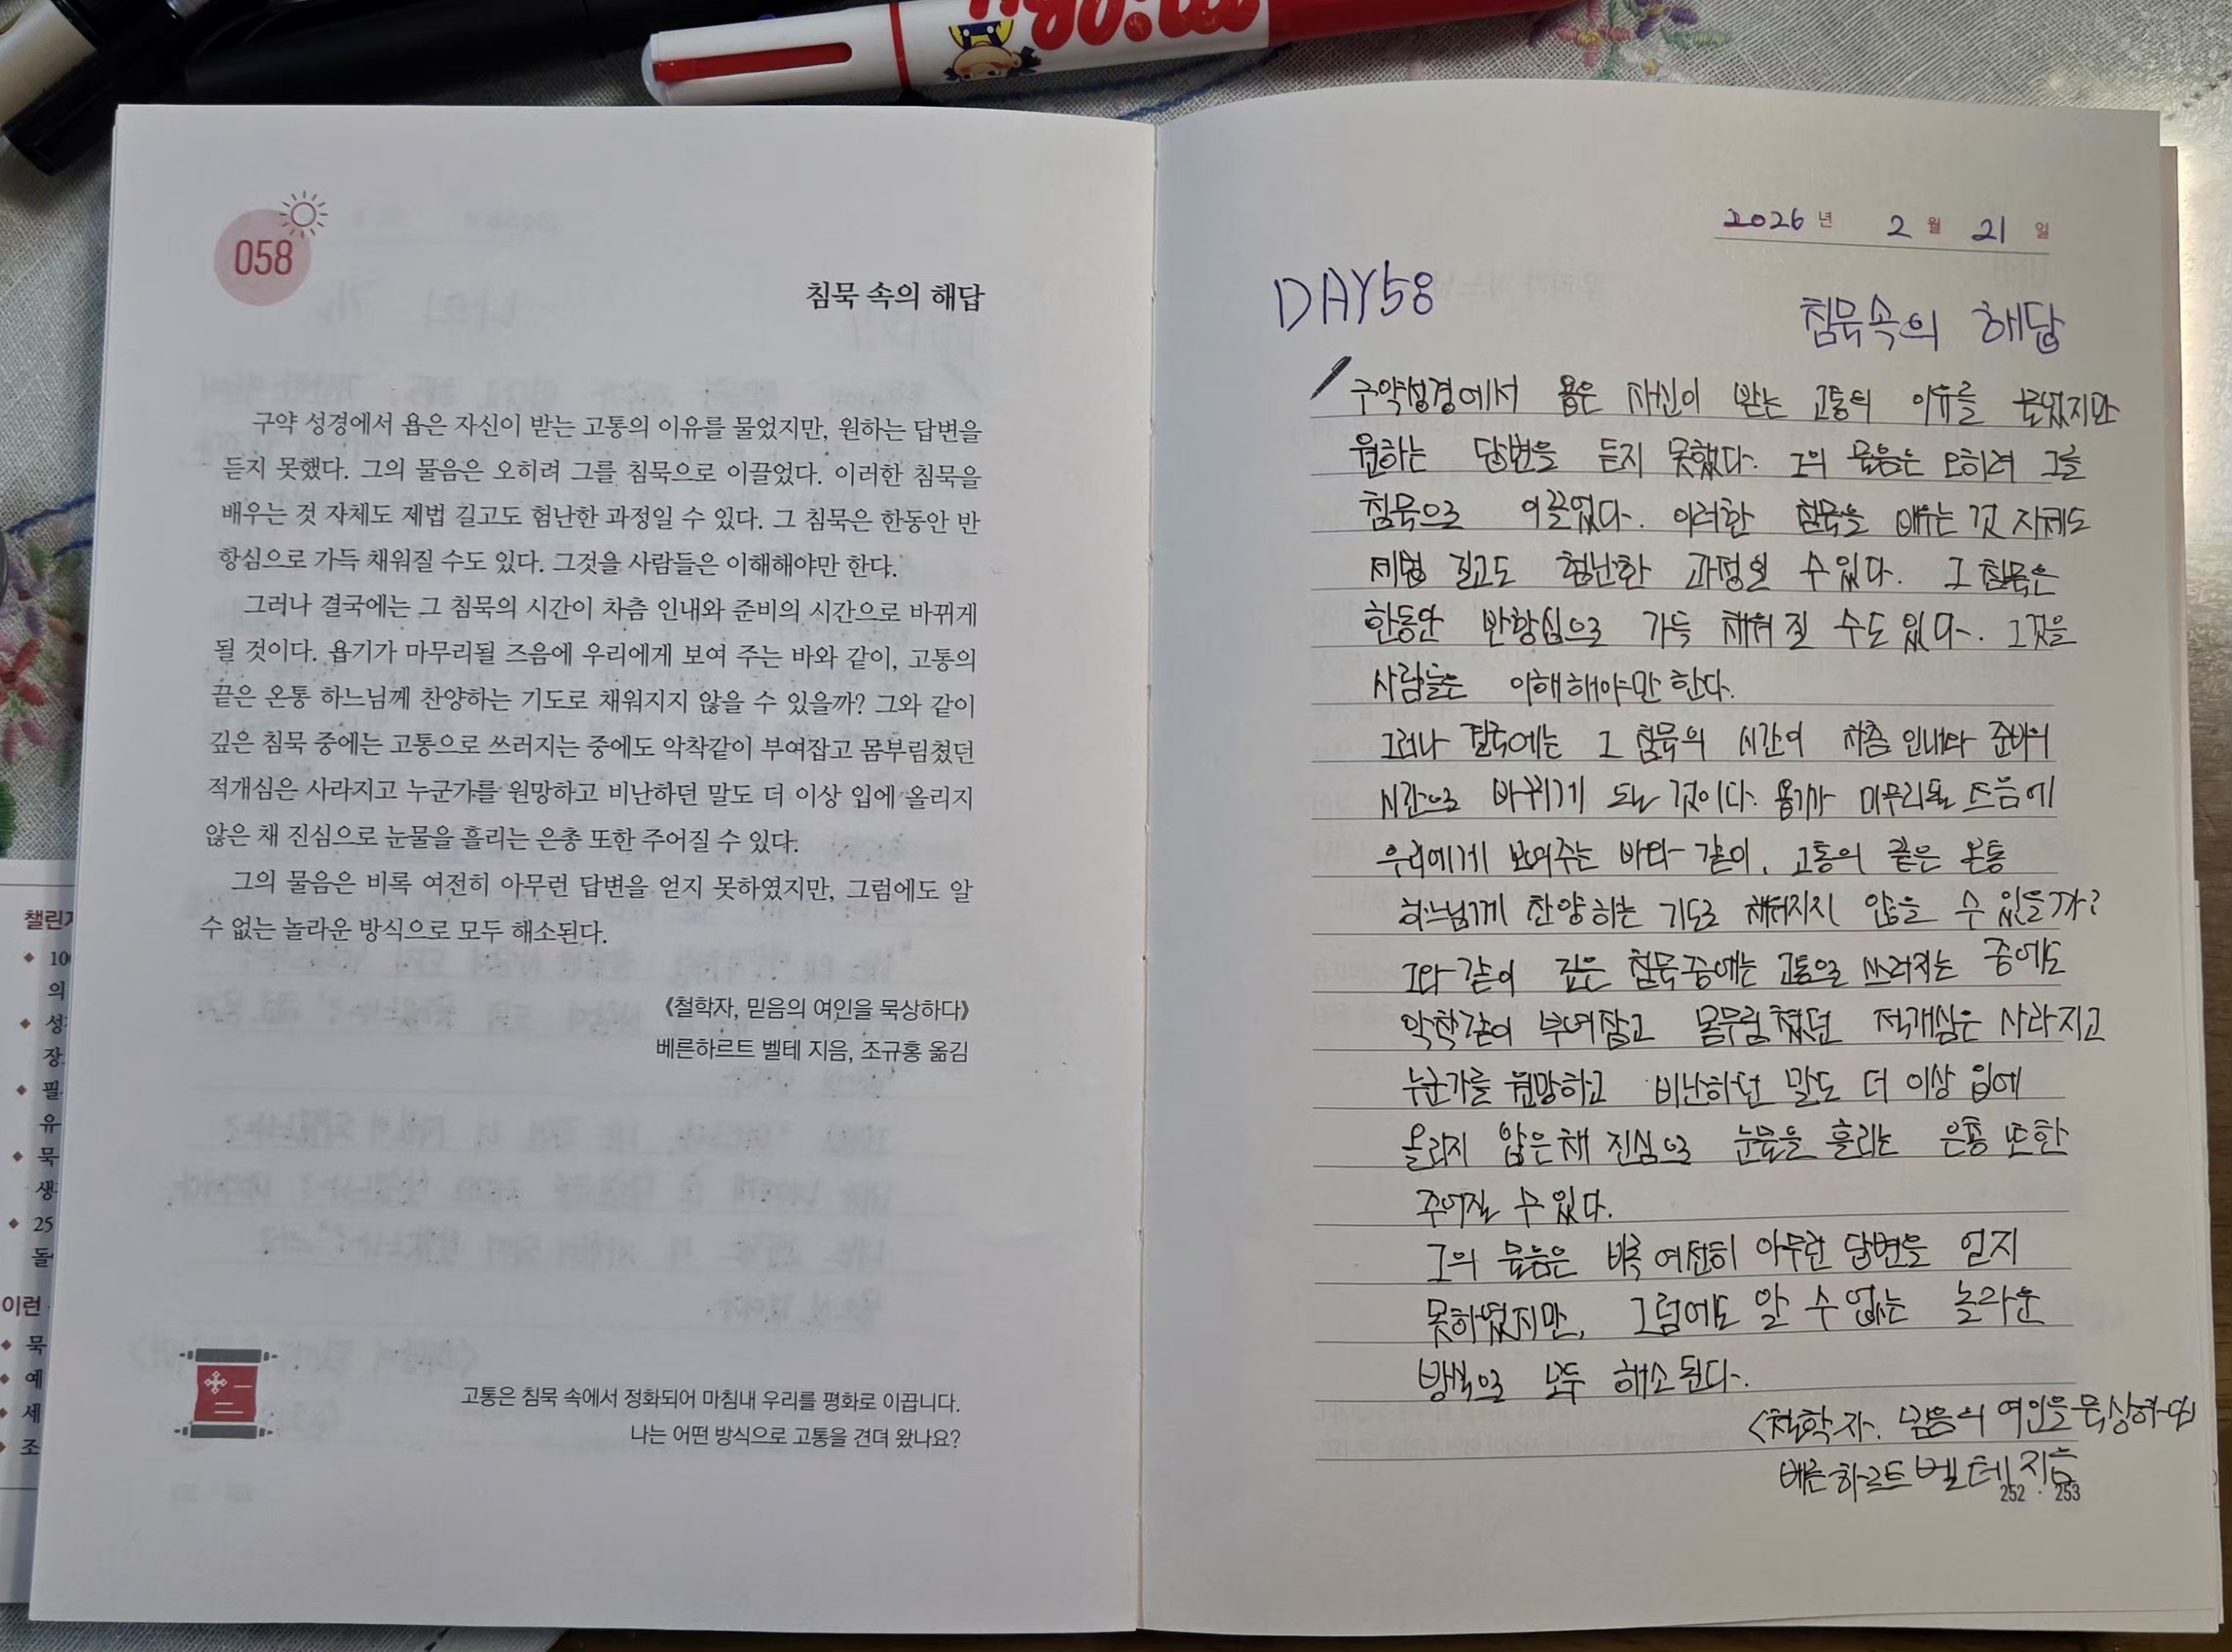 058
침묵 속의 해답
구약 성경에서 욥은 자신이 받는 고통의 이유를 물었지만, 원하는 답변을
듣지 못했다. 그의 물음은 오히려 그를 침묵으로 이끌었다. 이러한 침묵을
배우는 것 자체도 제법 길고도 험난한 과정일 수 있다. 그 침묵은 한동안 반
항심으로 가득 채워질 수도 있다. 그것을 사람들은 이해해야만 한다.
그러나 결국에는 그 침묵의 시간이 차츰 인내와 준비의 시간으로 바뀌게
될 것이다. 욥기가 마무리될 즈음에 우리에게 보여 주는 바와 같이, 고통의
끝은 온통 하느님께 찬양하는 기도로 채워지지 않을 수 있을까? 그와 같이
깊은 침묵 중에는 고통으로 쓰러지는 중에도 악착같이 부여잡고 몸부림쳤던
적개심은 사라지고 누군가를 원망하고 비난하던 말도 더 이상 입에 올리지
않은 채 진심으로 눈물을 흘리는 은총 또한 주어질 수 있다.
그의 물음은 비록 여전히 아무런 답변을 얻지 못하였지만, 그럼에도 알
수 없는 놀라운 방식으로 모두 해소된다.
《철학자, 믿음의 여인을 묵상하다》
베른하르트 벨테 지음, 조규홍 옮김
고통은 침묵 속에서 정화되어 마침내 우리를 평화로 이끕니다.
나는 어떤 방식으로 고통을 견뎌 왔나요?
챌린지
10
의
성
장
필
유
묵
생
25
돌
이런
묵
예
세
조
2026년 2월 21일
DAY58
침묵속의 해답
구약성경에서 욥은 자신이 받는 고통의 이유를 물었지만
원하는 답변을 듣지 못했다. 그의 물음은 오히려 그를
침묵으로 이끌었다. 이러한 침묵을 배우는 것 자체도
제법 길고도 험난한 과정일 수 있다. 그 침묵은
한동안 반항심으로 가득 채워질 수도 있다. 그것을
사람들은 이해해야만 한다.
그러나 결국에는 그 침묵의 시간이 차츰 인내와 준비의
시간으로 바뀌게 되는 것이다. 욥기가 마무리될 즈음에
우리에게 보여주는 바와 같이, 고통의 끝은 온통
하느님께 찬양하는 기도로 채워지지 않을 수 있을까?
그와 같이 깊은 침묵중에는 고통으로 쓰러지는 중에도
악착같이 부여잡고 몸부림쳤던 적개심은 사라지고
누군가를 원망하고 비난하던 말도 더 이상 입에
올리지 않은채 진심으로 눈물을 흘리는 은총 또한
주어질 수 있다.
그의 물음은 비록 여전히 아무런 답변을 얻지
못하였지만, 그럼에도 알 수 없는 놀라운
방식으로 모두 해소된다.
<철학자, 믿음의 여인을 묵상하다>
베른하르트벨테 지음
252 · 253